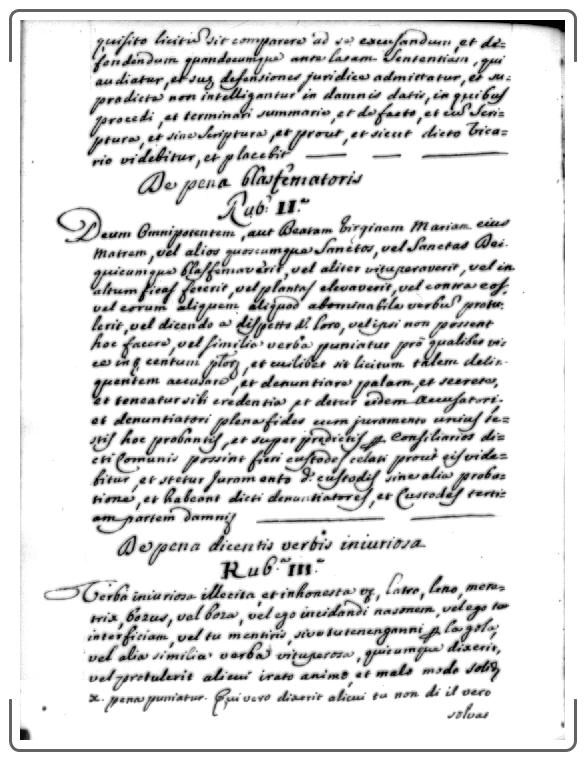 quisito licitũ sit comparere ad se excusandum, et de=
fendendum quandocumque ante latam Sententiam, qui
audiatur, et suę defensiones juridice admittatur, et su=
pradicta non intelligantur in damnis datis, in quibus
procedi, et terminari summarie, et de facto, et cũ Scri=
ptura, et sine Scriptura, et prout, et sicut dicto Vica=
rio videbitur, et placebit
De pena blasfematoris
Rub. II.ª
Deum Omnipotentem, aut Beatam Virginem Mariam eius
Matrem, vel alios quoscumque Sanctos, vel Sanctas Dei
quicumque blasfemaverit, vel aliter vituperaverit, vel in
altum ficas fecerit, vel plantas elevaverit, vel contra eos,
vel eorum aliquem aliquod abominabile verbũ protu=
lerit, vel dicendo a dispetto di loro, vel ipsi non possent
hoc facere, vel similia verba puniatur pro qualibet vi=
ce in centum, et cuilibet sit licitum talem delin=
quentem accusare, et denuntiare palam, et secrete,
et teneatur sibi credentia, et detur eidem Accusatori,
et denuntiatori plena fides cum juramento unius te=
stis hoc probantis, et super predictis ꝑ Consiliarios di=
cti Comunis possint fieri custodes celati prout eis vide=
bitur, et stetur Juramento d. custodis sine alia proba=
tione, et habeant dicti denuntiatores, et Custodes terti=
am partem damnis
De pena dicentis verbis iniuriosa
Rub.ª III.ª
Verba iniuriosa illecita, et inhonesta, latro, leno, mere=
trix, bozus, vel boza, vel ego incidandi nasonem, vel ego te
interficiam, vel tu mentiris, sive tu tenenganni ꝑ la gola,
vel alia similia verba vituperosa, quicumque dixerit,
vel protulerit alicui irato animo, et malo modo
x. pena puniatur. Qui vero dixerit alicui tu non di il vero
solvat